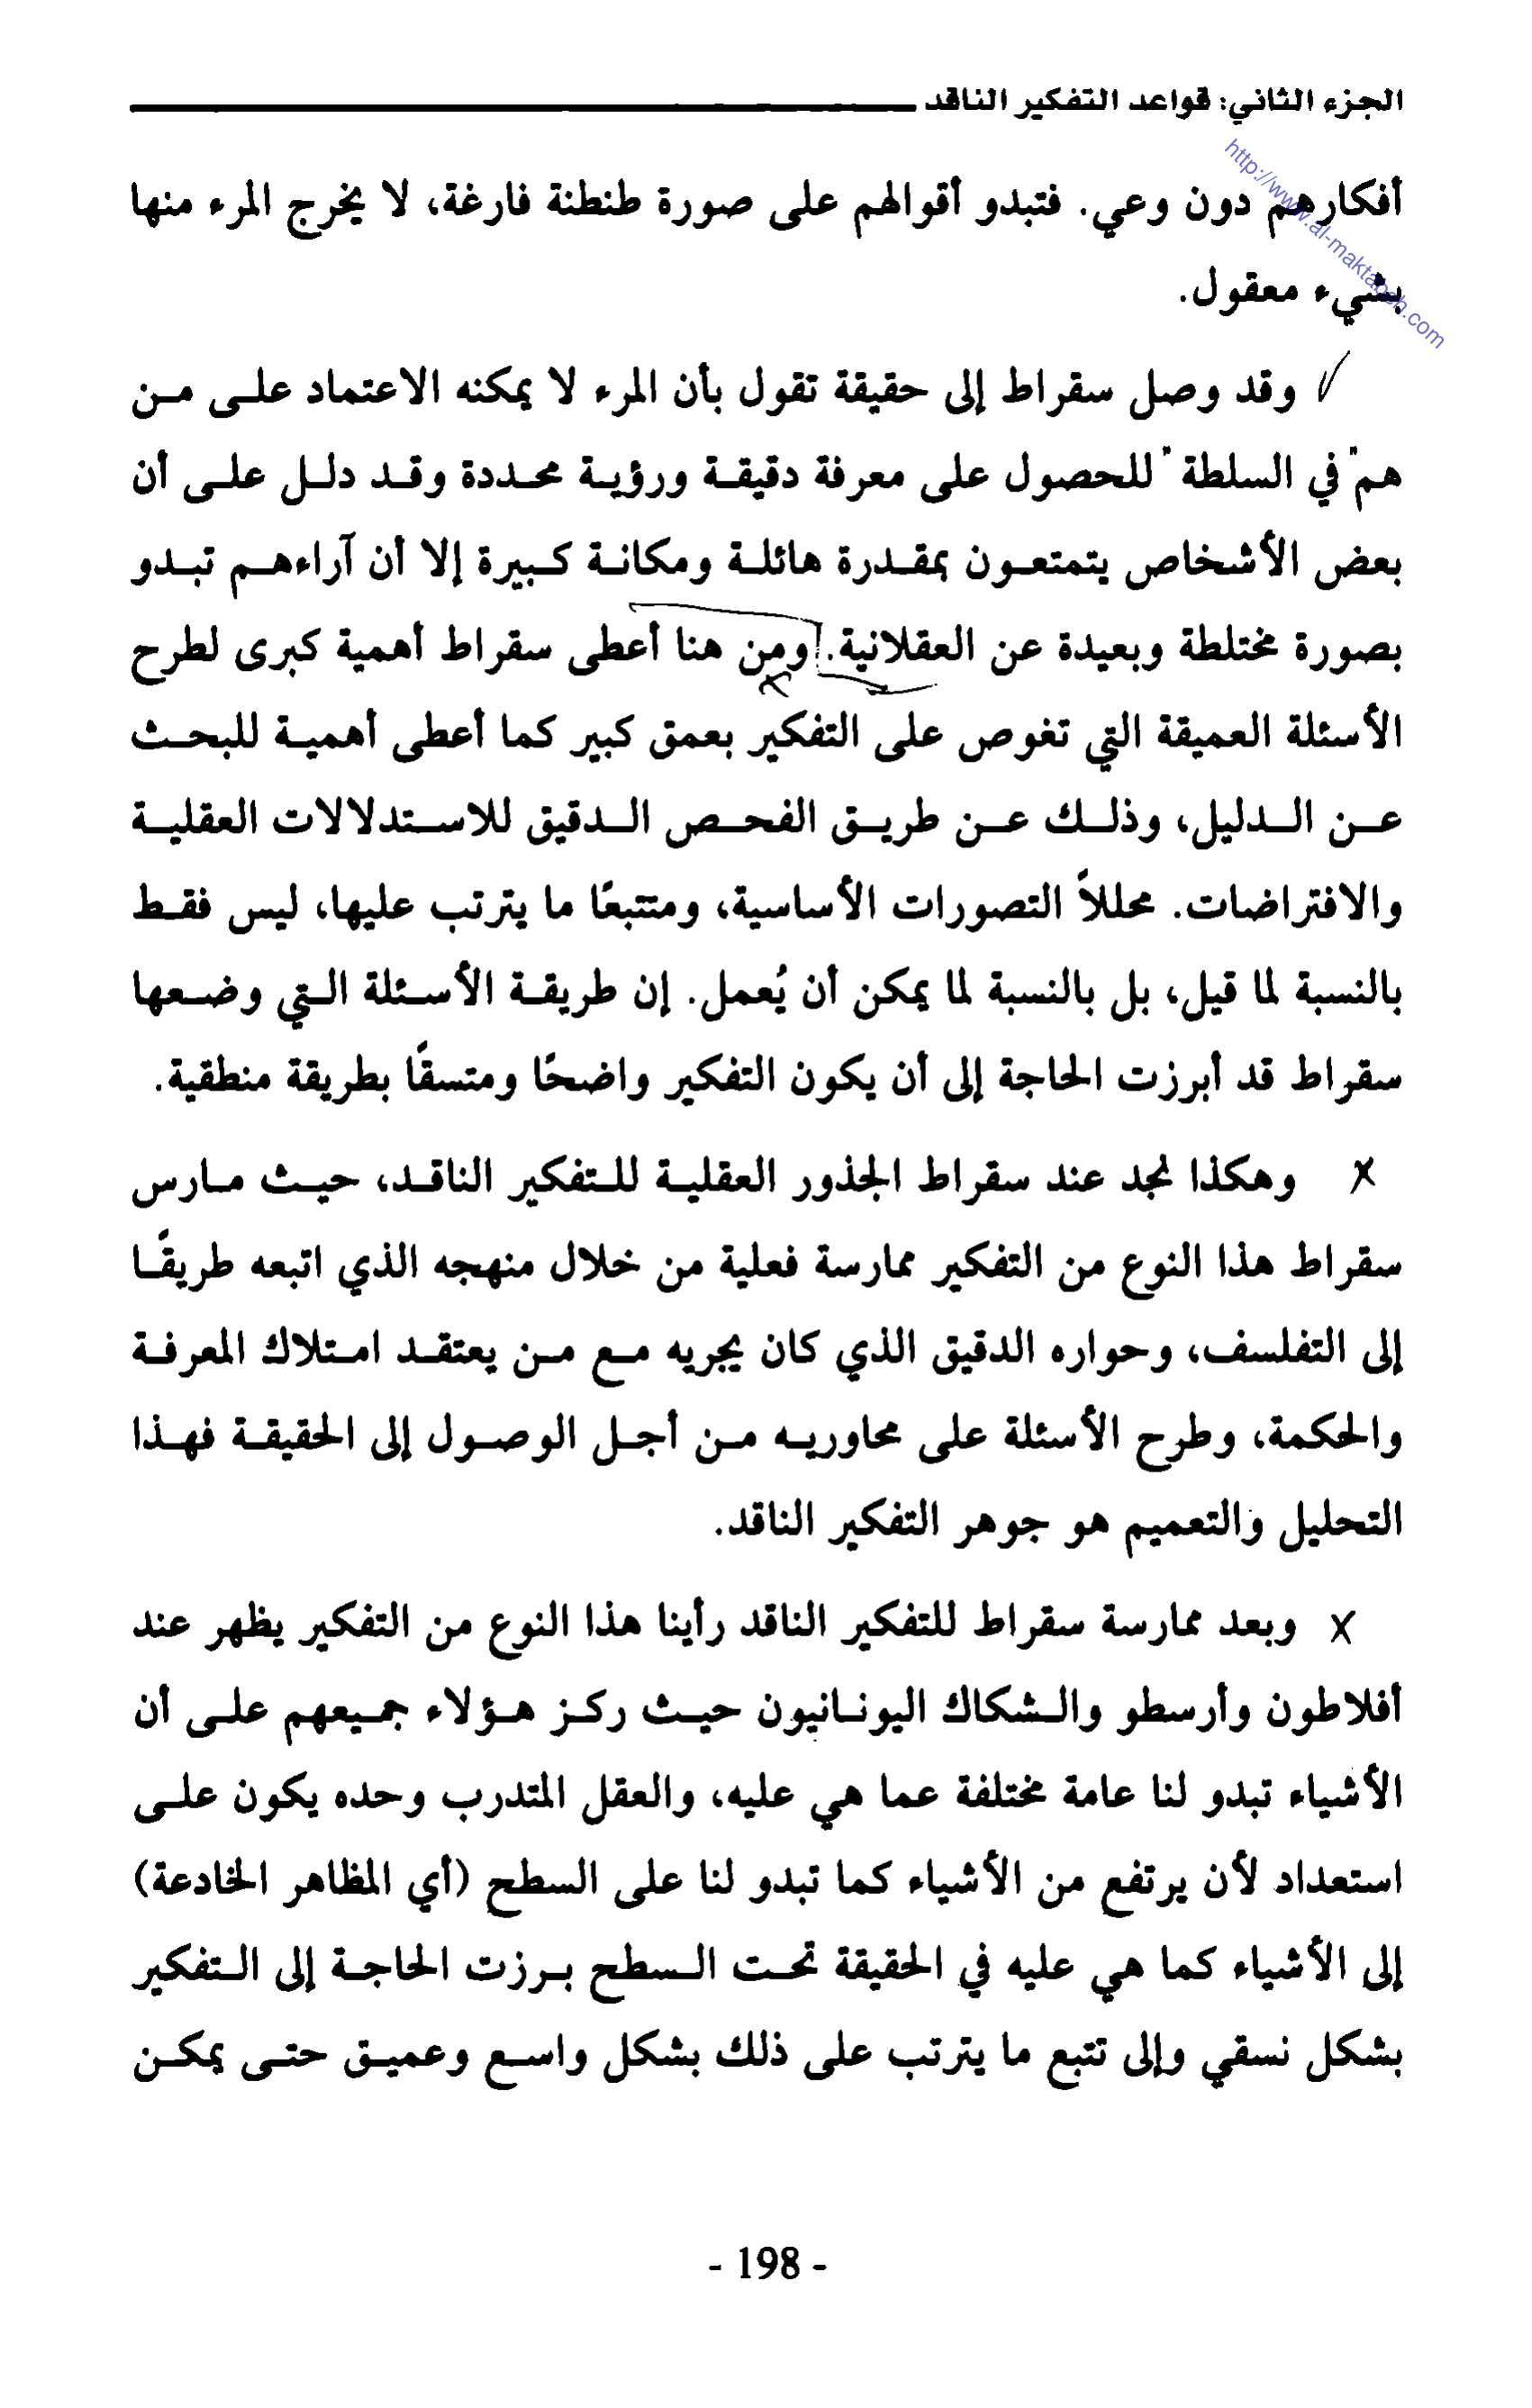 الجزء الثاني: قواعد التفكير الناقد
http://www.al-maktabeh.com
أفكارهم دون وعي. فتبدو أقوالهم على صورة طنطنة فارغة، لا يخرج المرء منها
بشيء معقول.
وقد وصل سقراط إلى حقيقة تقول بأن المرء لا يمكنه الاعتماد على من
هم "في السلطة" للحصول على معرفة دقيقة ورؤية محددة وقد دلل على أن
بعض الأشخاص يتمتعون بمقدرة هائلة ومكانة كبيرة إلا أن آراءهم تبدو
بصورة مختلطة وبعيدة عن العقلانية. ومن هنا أعطى سقراط أهمية كبرى لطرح
الأسئلة العميقة التي تغوص على التفكير بعمق كبير كما أعطى أهمية للبحث
عن الدليل، وذلك عن طريق الفحص الدقيق للاستدلالات العقلية
والافتراضات. محللاً التصورات الأساسية، ومتتبعًا ما يترتب عليها، ليس فقط
بالنسبة لما قيل، بل بالنسبة لما يمكن أن يُعمل. إن طريقة الأسئلة التي وضعها
سقراط قد أبرزت الحاجة إلى أن يكون التفكير واضحًا ومتسقًا بطريقة منطقية.
وهكذا نجد عند سقراط الجذور العقلية للتفكير الناقد، حيث مارس
سقراط هذا النوع من التفكير ممارسة فعلية من خلال منهجه الذي اتبعه طريقًا
إلى التفلسف، وحواره الدقيق الذي كان يجريه مع من يعتقد امتلاك المعرفة
والحكمة، وطرح الأسئلة على محاوريه من أجل الوصول إلى الحقيقة فهذا
التحليل والتعميم هو جوهر التفكير الناقد.
وبعد ممارسة سقراط للتفكير الناقد رأينا هذا النوع من التفكير يظهر عند
أفلاطون وأرسطو والشكاك اليونانيون حيث ركز هؤلاء جميعهم على أن
الأشياء تبدو لنا عامة مختلفة عما هي عليه، والعقل المتدرب وحده يكون على
استعداد لأن يرتفع من الأشياء كما تبدو لنا على السطح (أي المظاهر الخادعة)
إلى الأشياء كما هي عليه في الحقيقة تحت السطح برزت الحاجة إلى التفكير
بشكل نسقي وإلى تتبع ما يترتب على ذلك بشكل واسع وعميق حتى يمكن
- 198 -